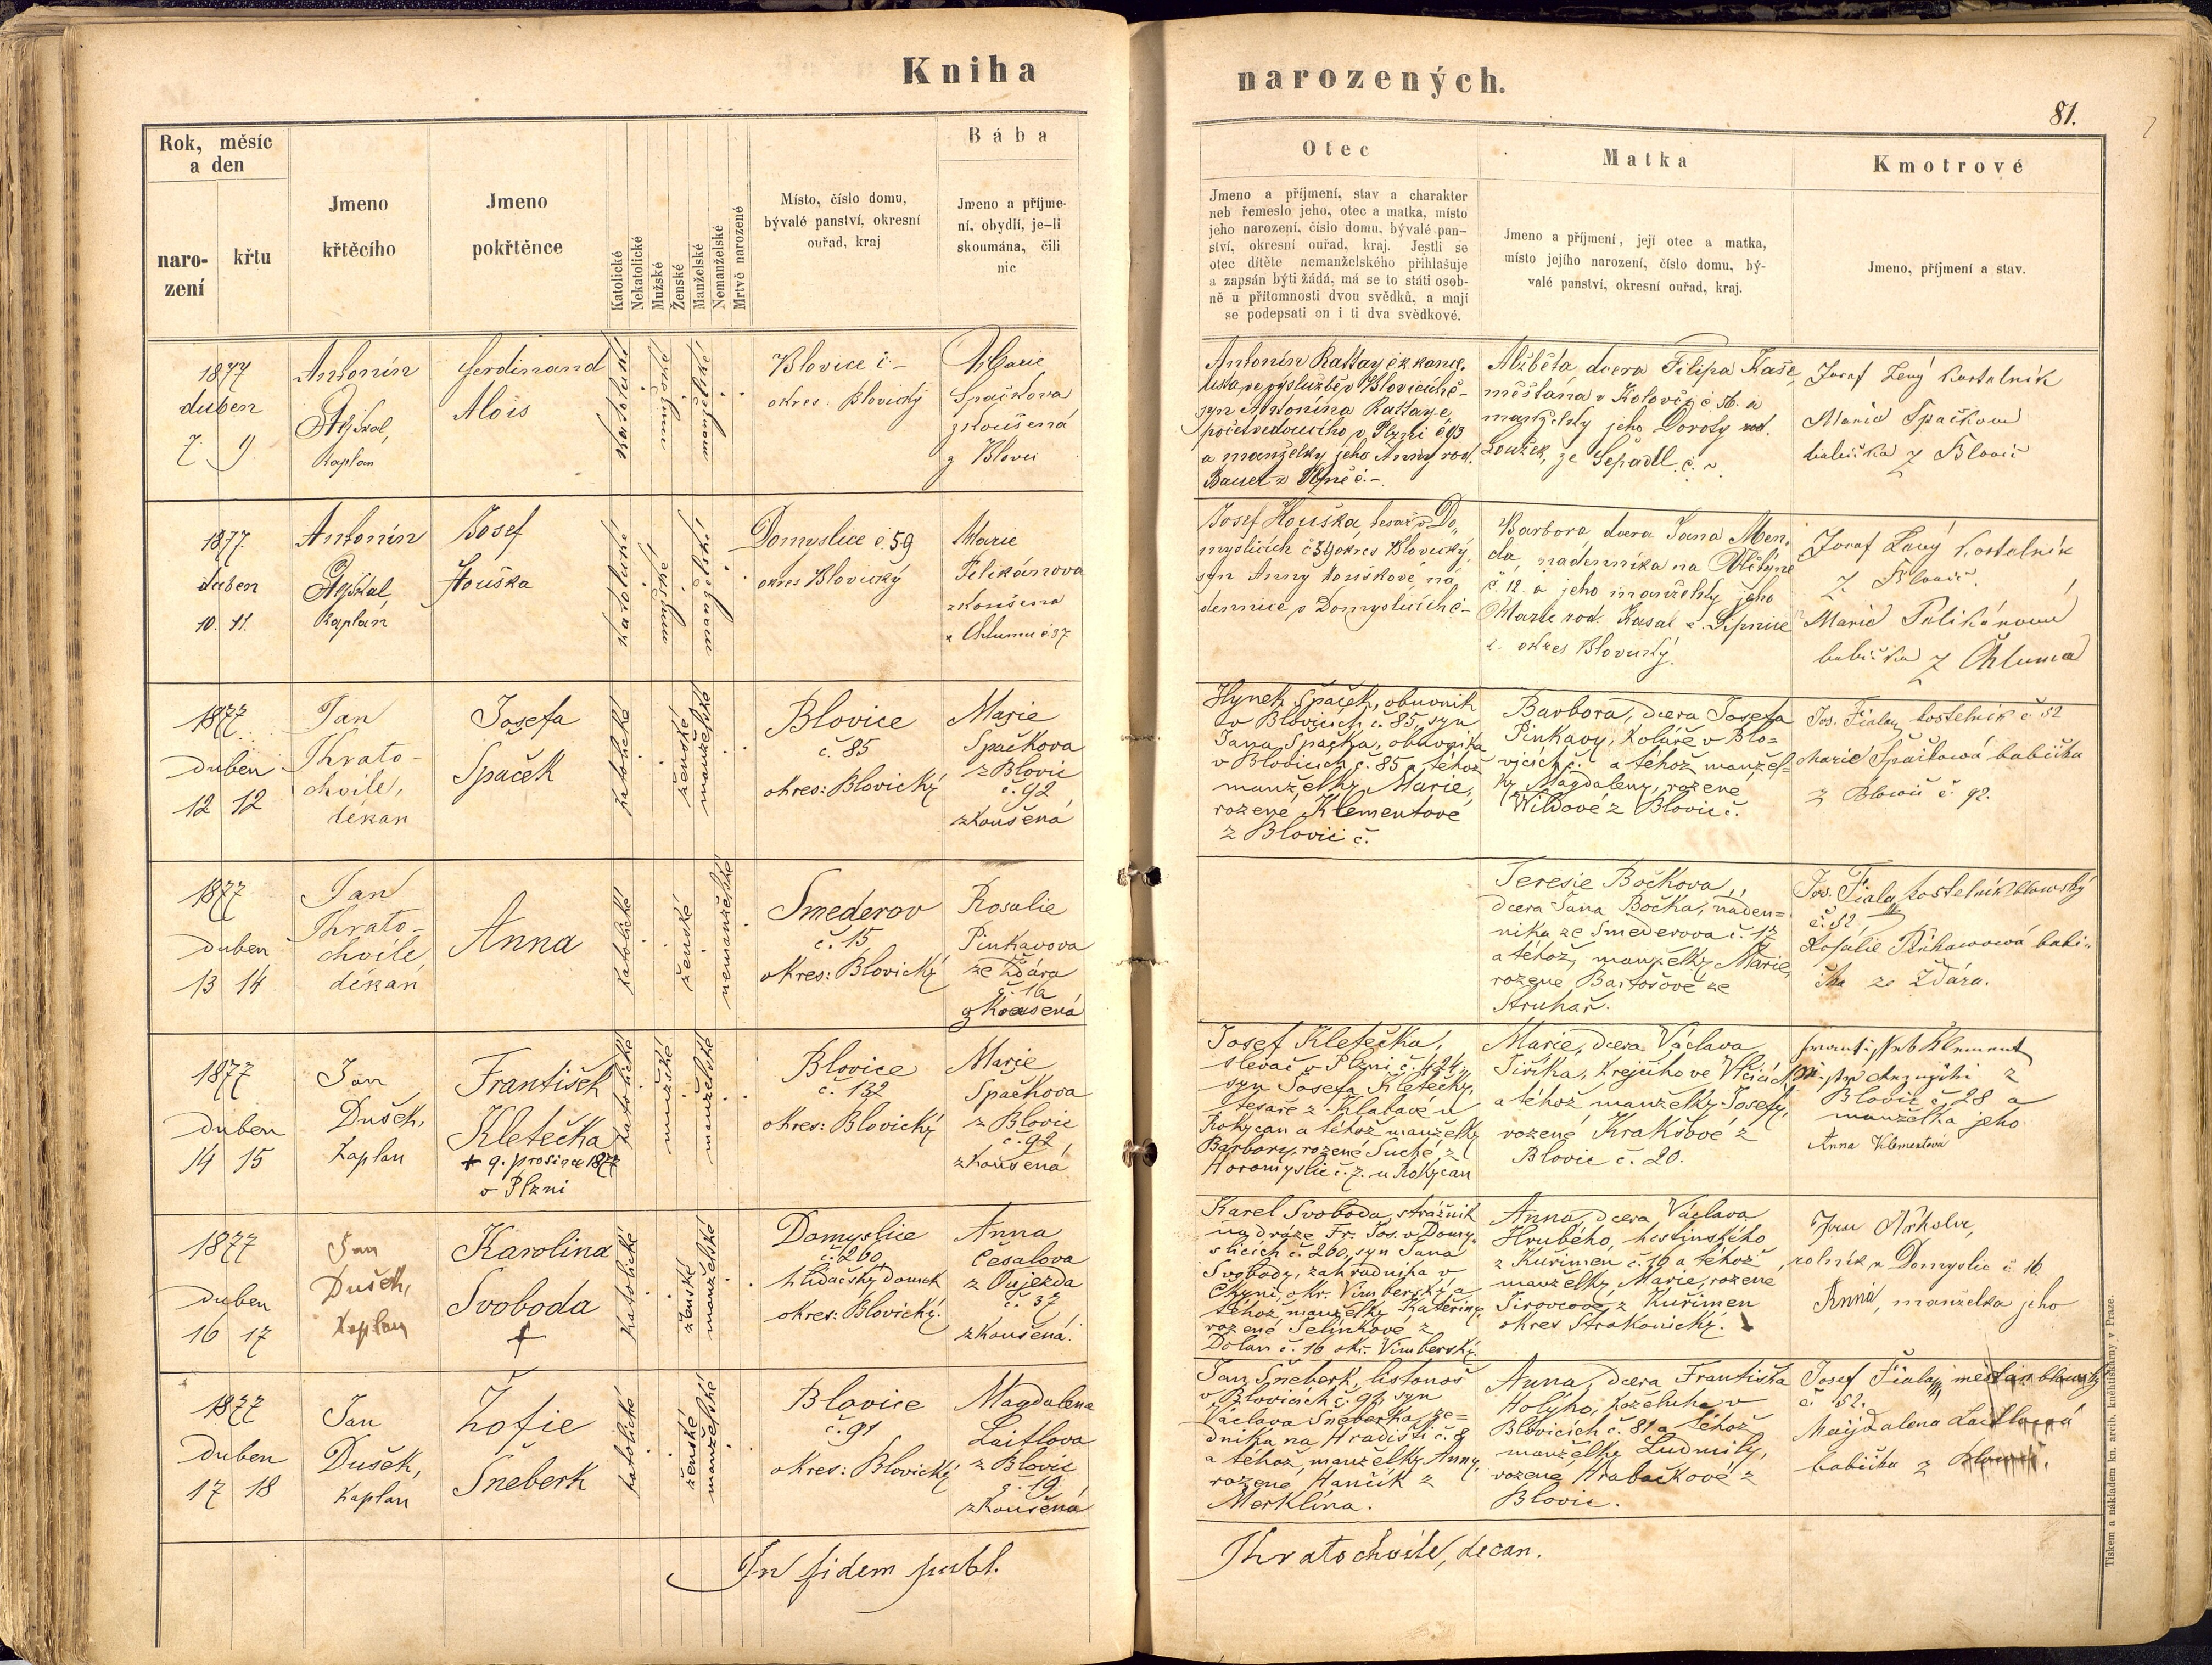 Kniha
narozených.
81.
Rok, měsíc
a den
naro-
zení
křtu
Jmeno
křtěcího
Jmeno
pokřtěnce
Katolické
Nekatolické
Mužské
Ženské
Manželské
Nemanželské
Mrtvě narozené
Místo, číslo domu,
bývalé panství, okresní
ouřad, kraj
Bába
Jmeno a příjme-
ní, obydlí, je-li
skoumána, čili
nic
Otec
Jmeno a příjmení, stav a charakter
neb řemeslo jeho, otec a matka, místo
jeho narození, číslo domu, bývalé pan-
ství, okresní ouřad, kraj. Jestli se
otec dítěte nemanželského přihlašuje
a zapsán býti žádá, má se to státi osob-
ně u přítomnosti dvou svědků, a mají
se podepsati on i ti dva svědkové.
Matka
Jmeno a příjmení, její otec a matka,
místo jejího narození, číslo domu, bý-
valé panství, okresní ouřad, kraj.
Kmotrové
Jmeno, příjmení a stav.
1877
duben
7. 9.
Antonín
kaplán
Ferdinand
Alois
katolické
mužské
manželské
Blovice č. -
okres: Blovický
Marie
Spačkova
zkoušená
z Blovic
Antonín Rattay c. k. kance.
lista ve výslužbě v Blovicích č -
syn Antonína Rattaye,
početvedoucího v Plzni č 93
a manželky jeho Anny rod.
Bauer z č. -
Alžběta dcera Filipa Kaše,
měšťana v Kolovči č. 56. a
manželky jeho Doroty rod.
Loužek, ze
Josef Lený kostelník
Marie Spačkova
babička z Blovic
1877.
duben
10. 11.
Antonín
kaplán
Josef
Houška
katolické
mužské
manželské
Domyslice č. 59
okres Blovický
Marie
Pelikánova
zkoušena
z Chlumu č 37
Josef Houška tesař v Do„
myslicích č 59 okres Blovický
syn Anny Houškové ná„
dennice v Domyslicích č -
Barbora dcera Jana Men„
da, nádenníka na Vlčtýně
č. 12. a jeho manželky jeho
Marie rod. Kasal z Lipnice
č. okres Blovický.
Josef Lený kostelník
z Blovic.
Marie Pelikánova
babička z Chluma
1877
duben
12 12
Jan
Thrato-
chvile,
děkan
Josefa
Spaček
katolické
ženské
manželské
Blovice
č. 85
okres: Blovický
Marie
Spačkova
z Blovic
č. 92
zkoušená
Hynek Spaček, obuvník
v Blovicích č. 85, syn
Jana Spačka, obuvníka
v Blovicích č. 85 a téhož
manželky Marie,
rozené Klementové
z Blovic č.
Barbora, dcera Josefa
Pinkavy, koláře v Blo=
vicích č. a téhož manžel=
ky Magdaleny, rozené
Wildové z Blovic č.
Jos. Fiala, kostelník č 52
Marie Spačkowá babička
z Blowic č. 92.
1877
duben
13 14
Jan
Thrato-
chvile,
děkan
Anna
katolické
ženské
nemanželské
Smederov
č. 15
okres: Blovický
Rosalie
Pinkavova
ze Ždára
č. 16
zkoušená
Teresie Bočkova,
dcera Jana Bočka, náden=
níka ze Smederova č. 17
a téhož manželky Marie,
rozené Bartošové ze
Struhař.
Jos. Fiala, kostelník blowský
č. 52,
Rosalie Pinkawowá babi„
čka ze Ždára.
1877
duben
14 15
Jan
Dušek,
kaplan
František
Kletečka
+ 9. prosince 1877
v Plzni
katolické
mužské
manželské
Blovice
č. 132
okres: Blovický
Marie
Spačkova
z Blovic
č. 92
zkoušená
Josef Kletečka,
slevač v Plzni č. 424,
syn Josefa Kletečky,
tesaře z Klabavé u
Rokycan a téhož manželky
Barbory, rozené Suché, z
Horomyslic č. 7. u Rokycan
Marie, dcera Václava
Jiříka, krejčího ve Vlčicích
a téhož manželky Josefy,
rozené Kraksové z
Blovic č. 20.
František Klement
z
Blovic č. 28 a
manželka jeho
Anna Klementová
1877
duben
16 17
Jan
Dušek,
kaplan
Karolina
Svoboda
+
katolické
ženské
manželské
Domyslice
č. 260
hlídačský domek
okres: Blovický.
Anna
Česalova
z Vujezda
č. 37
zkoušená.
Karel Svoboda, strážník
na dráze Fr. Jos. v Domy.
slicích č. 260, syn Jana
Svobody, zahradníka v
Čkyni, okr. Vimberský, a
téhož manželky Kateřiny,
rozené Jelínkové z
Dolan č. 16 okr. Vimberský.
Anna, dcera Václava
Hrubého, hostinského
z Kuřimen č. 16 a téhož
manželky Marie, rozené
Sirovcové z Kuřimen
okres Strakonický.
rolník z Domyslic č 16.
Anna, manželka jeho
1877
duben
17 18
Jan
Dušek,
kaplan
Žofie
Šneberk
katolické
ženské
manželské
Blovice
č. 91
okres: Blovický
Magdalena
Laitlova
z Blovic
č. 19
zkoušená
Jan Šneberk, listonoš
v Blovicích č. 91, syn
Václava Šneberka, ze=
dníka na Hradišti č. 8
a téhož manželky Anny,
rozené Hančík z
Merklína.
Anna, dcera Františka
Holýho, koželuha v
Blovicích č. 81 a téhož
manželky Ludmily,
rozené Hrabačkové z
Blovic.
Josef Fiala, mešťan blowský
č 52.
Magdalena Laitlowá
babička z Blowic.
In fidem publ.
Thratochvile, decan.
Tiskem a nákladem kn. arcib. knihtiskárny v Praze.